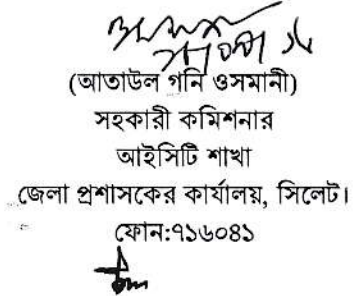 (আতাউল গনি ওসমানী)
সহকারী কমিশনার
আইসিটি শাখা
জেলা প্রশাসকের কার্যালয়, সিলেট।
ফোন:৭১৬০৪১